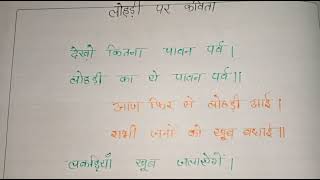 लोहड़ी पर कविता
देखो कितना पावन पर्व।
लोहड़ी का ये पावन पर्व॥
आज फिर से लोहड़ी आई।
सभी जनों को खूब बधाई॥
लकड़ियाँ खूब जलायेगें।